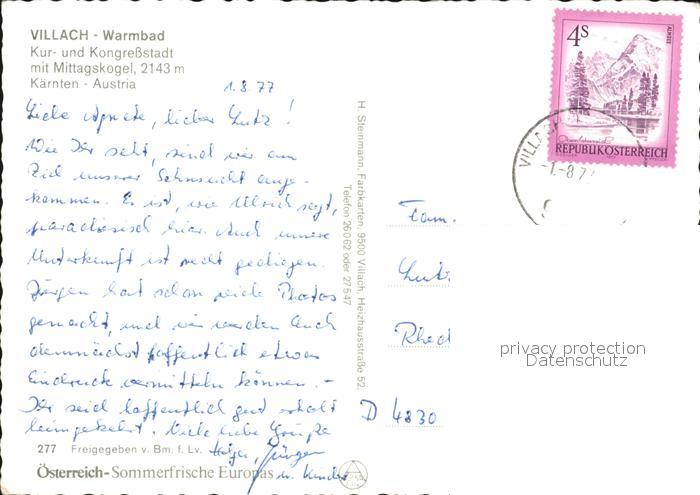 VILLACH - Warmbad
Kur- und Kongreßstadt
mit Mittagskogel, 2143 m
Kärnten - Austria
1.8.77
Liebe Agnete, lieber Lutz!
Wie Ihr seht, sind wir am
Ziel unserer Sehnsucht ange-
kommen. Es ist, wie Ulrich sagt,
paradiesisch hier. Auch unsere
Unterkunft ist recht gediegen.
Jürgen hat schon viele Photos
gemacht, und wir werden Euch
demnächst hoffentlich etwas
Eindrücke vermitteln können. -
Ihr seid hoffentlich gut erholt
heimgekehrt. Viele liebe Grüße
Jürgen
u. Kinder
277 Freigegeben v. Bm. f. Lv.
Österreich-Sommerfrische Europas
H. Steinmann, Farbkarten, 9500 Villach, Heizhausstraße 52,
Telefon 26062 oder 27547
4S
ALMSEE
REPUBLIK ÖSTERREICH
VILLACH
-1.-8.77
Fam.
Lutz
Rhed
D 4830
privacy protection
Datenschutz